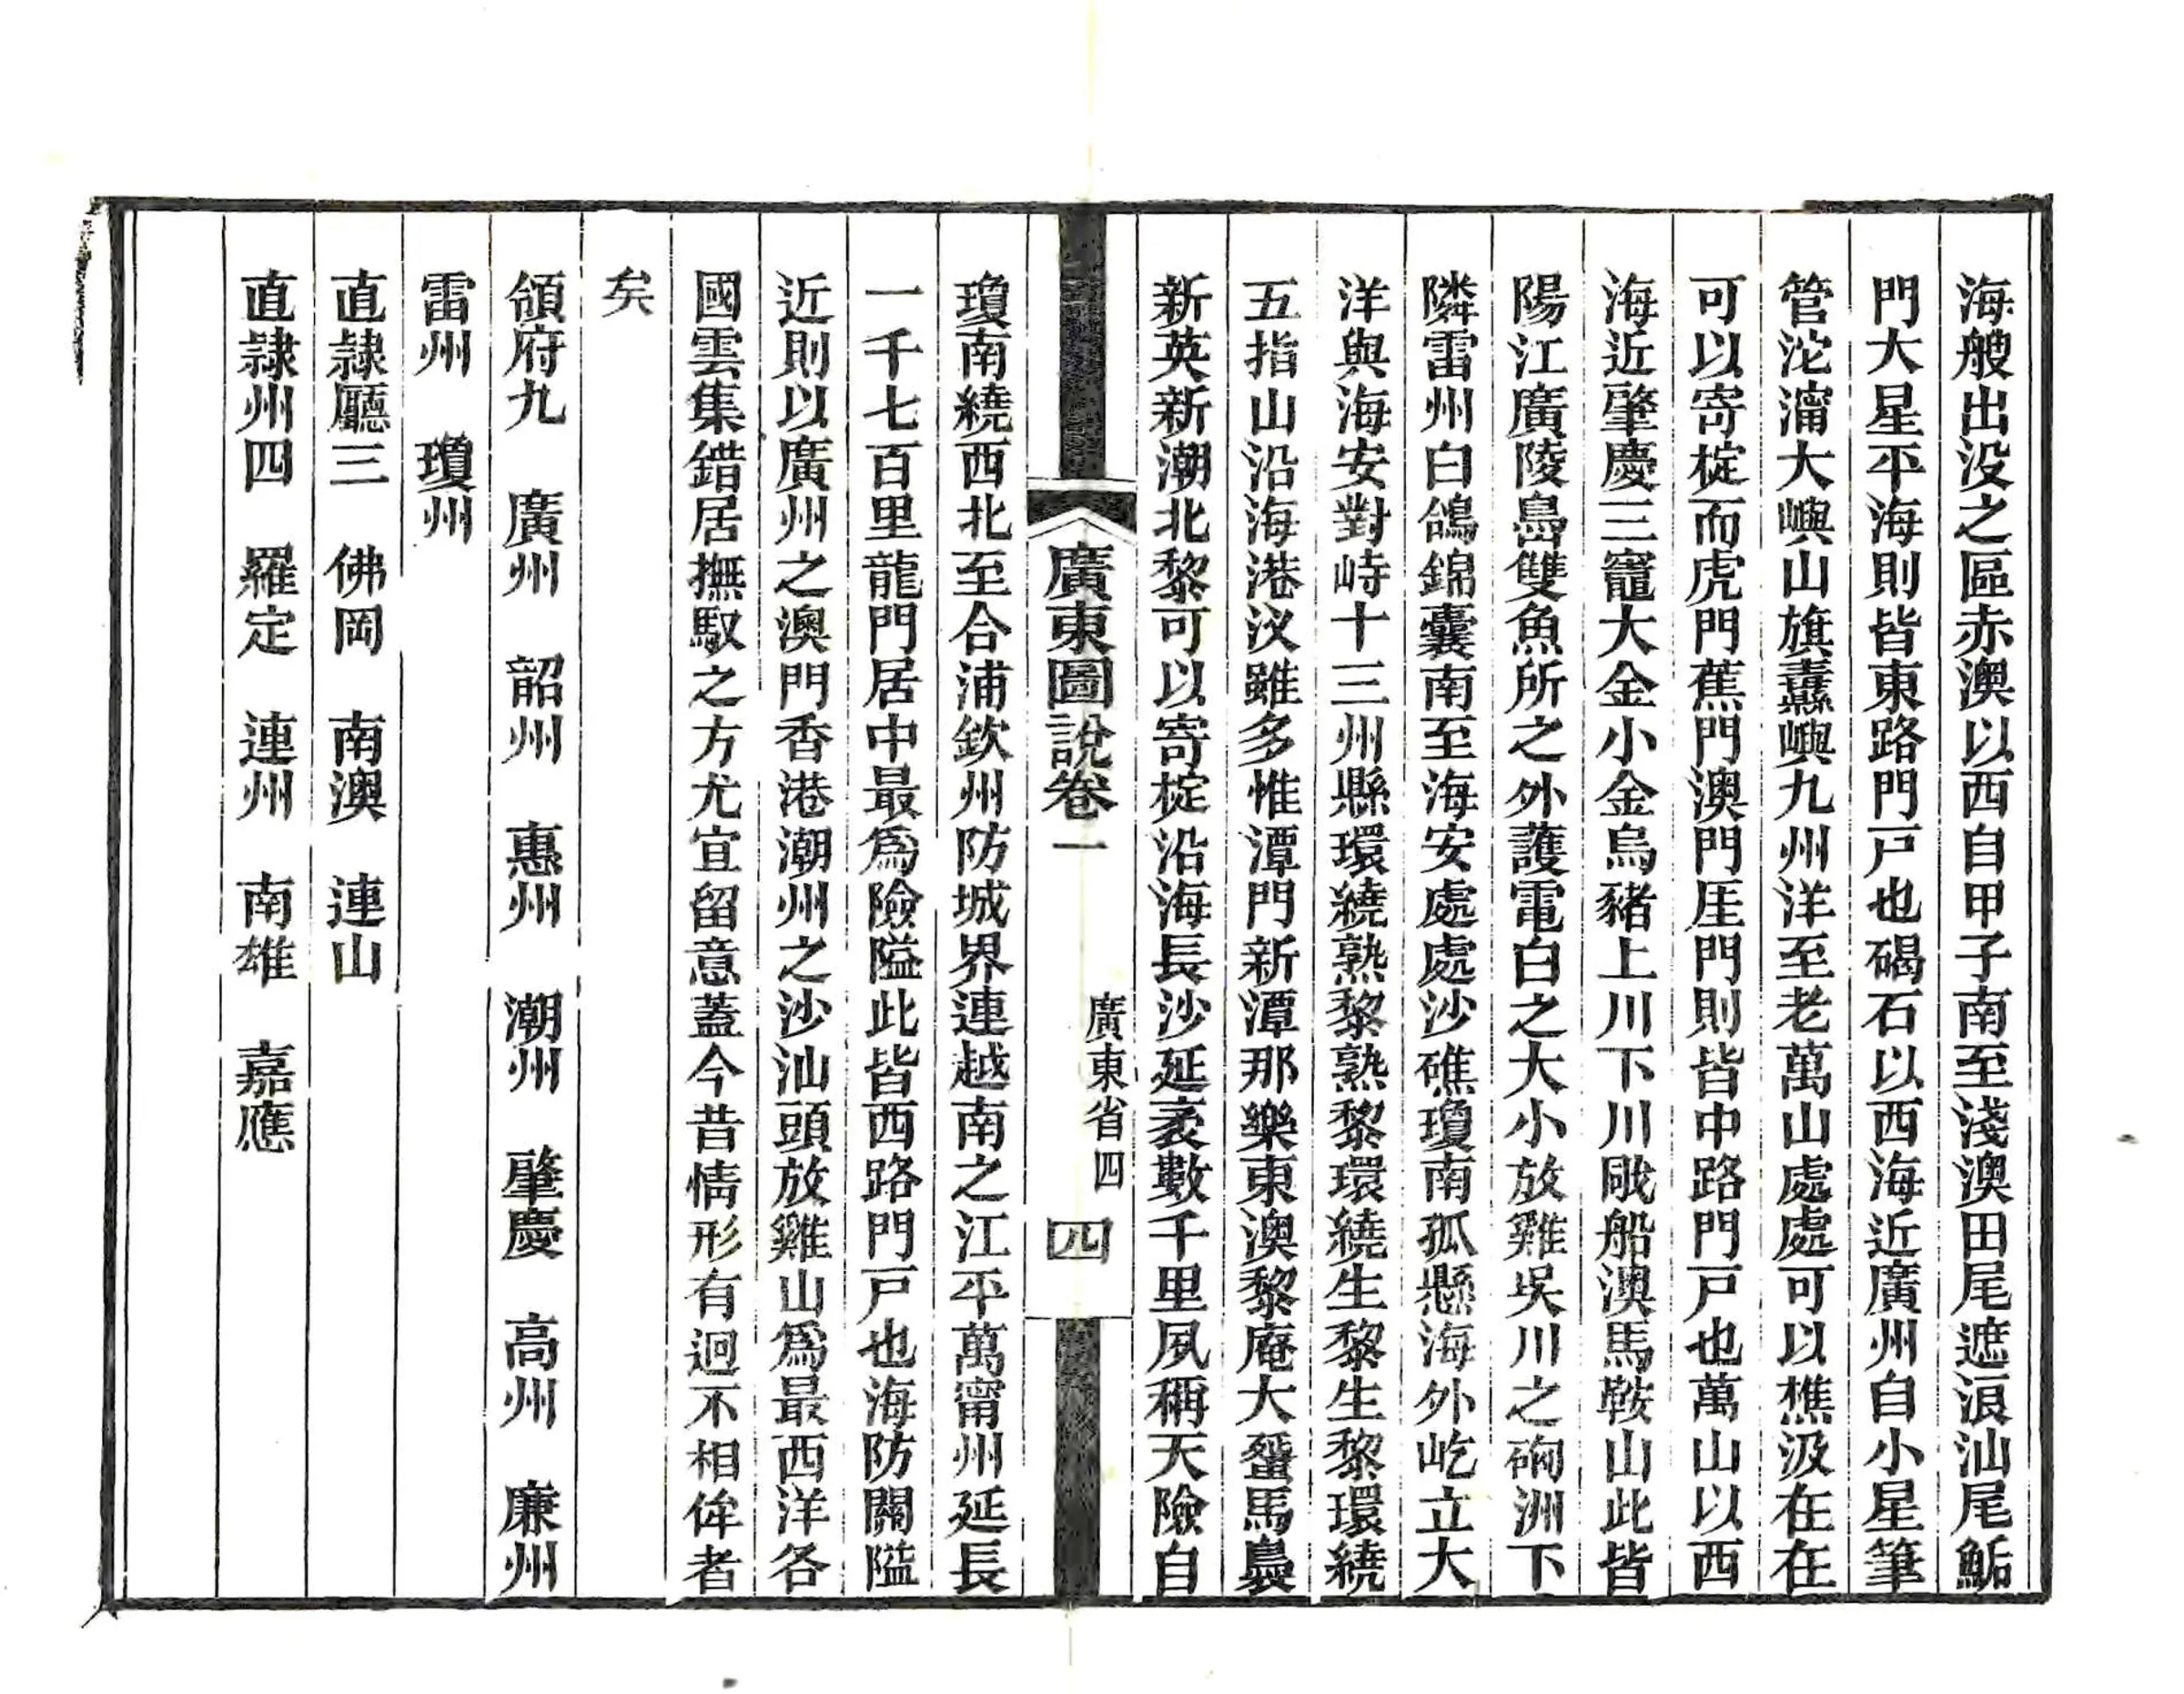 海艘出没之區赤澳以西自甲子南至淺澳田尾遮浪汕尾鮜
門大星平海則皆東路門戸也碣石以西海近廣州自小星筆
管沱濘大嶼山旗纛嶼九州洋至老萬山處處可以樵汲在在
可以寄椗而虎門蕉門澳門厓門則皆中路門戸也萬山以西
海近肇慶三竈大金小金烏豬上川下川戙船澳馬鞍山此皆
陽江廣陵島雙魚所之外護電白之大小放雞吳川之硇洲下
隣雷州白鴿錦囊南至海安處處沙礁瓊南孤懸海外屹立大
洋與海安對峙十三州縣環繞熟黎熟黎環繞生黎生黎環繞
五指山沿海港汊雖多惟潭門新潭那樂東澳黎庵大蜑馬裊
新英新潮北黎可以寄椗沿海長沙延袤數千里夙稱天險自
廣東圖說卷一
廣東省四
四
瓊南繞西北至合浦欽州防城界連越南之江平萬甯州延長
一千七百里龍門居中最爲險隘此皆西路門戸也海防關隘
近則以廣州之澳門香港潮州之沙汕頭放雞山爲最西洋各
國雲集錯居撫馭之方尤宜留意蓋今昔情形有迥不相侔者
矣
領府九　廣州　韶州　惠州　潮州　肇慶　高州　廉州
雷州　瓊州
直隷廳三　佛岡　南澳　連山
直隷州四　羅定　連州　南雄　嘉應